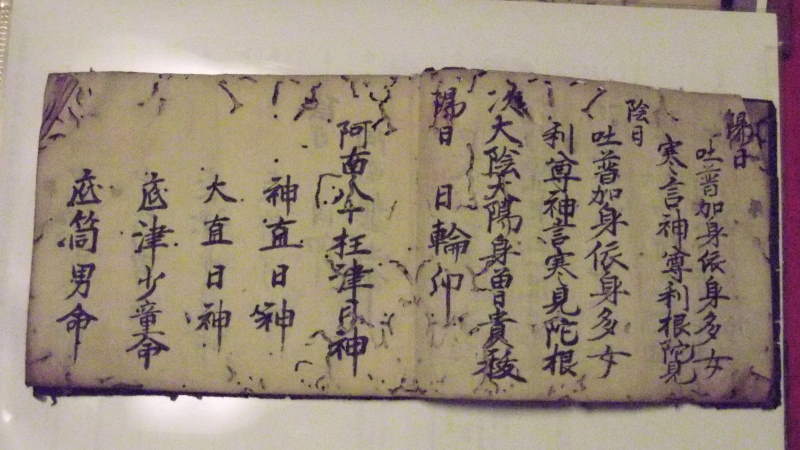 陽日
吐普加身依身多女
寒言神尊利根陀見
陰日
吐普加身依身多女
利尊神言寒見陀根
次大陰太陽身曽貴
陽日 日輪印
八十枉津日神
神直日神
大直日神
底津少童命
底筒男命